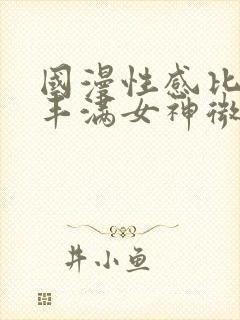 國漫性感比
丰满女神微
井小鱼